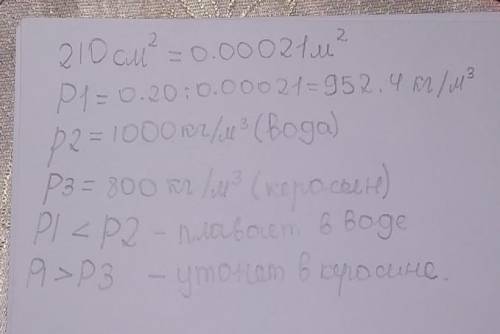 210 см² = 0.00021м²
p1 = 0.20 : 0.00021 = 952.4 кг/м³
p2 = 1000 кг/м³ (вода)
p3 = 800 кг/м³ (керосын)
p1 < p2 - плавает в воде
p1 > p3 - утонет в керосине.